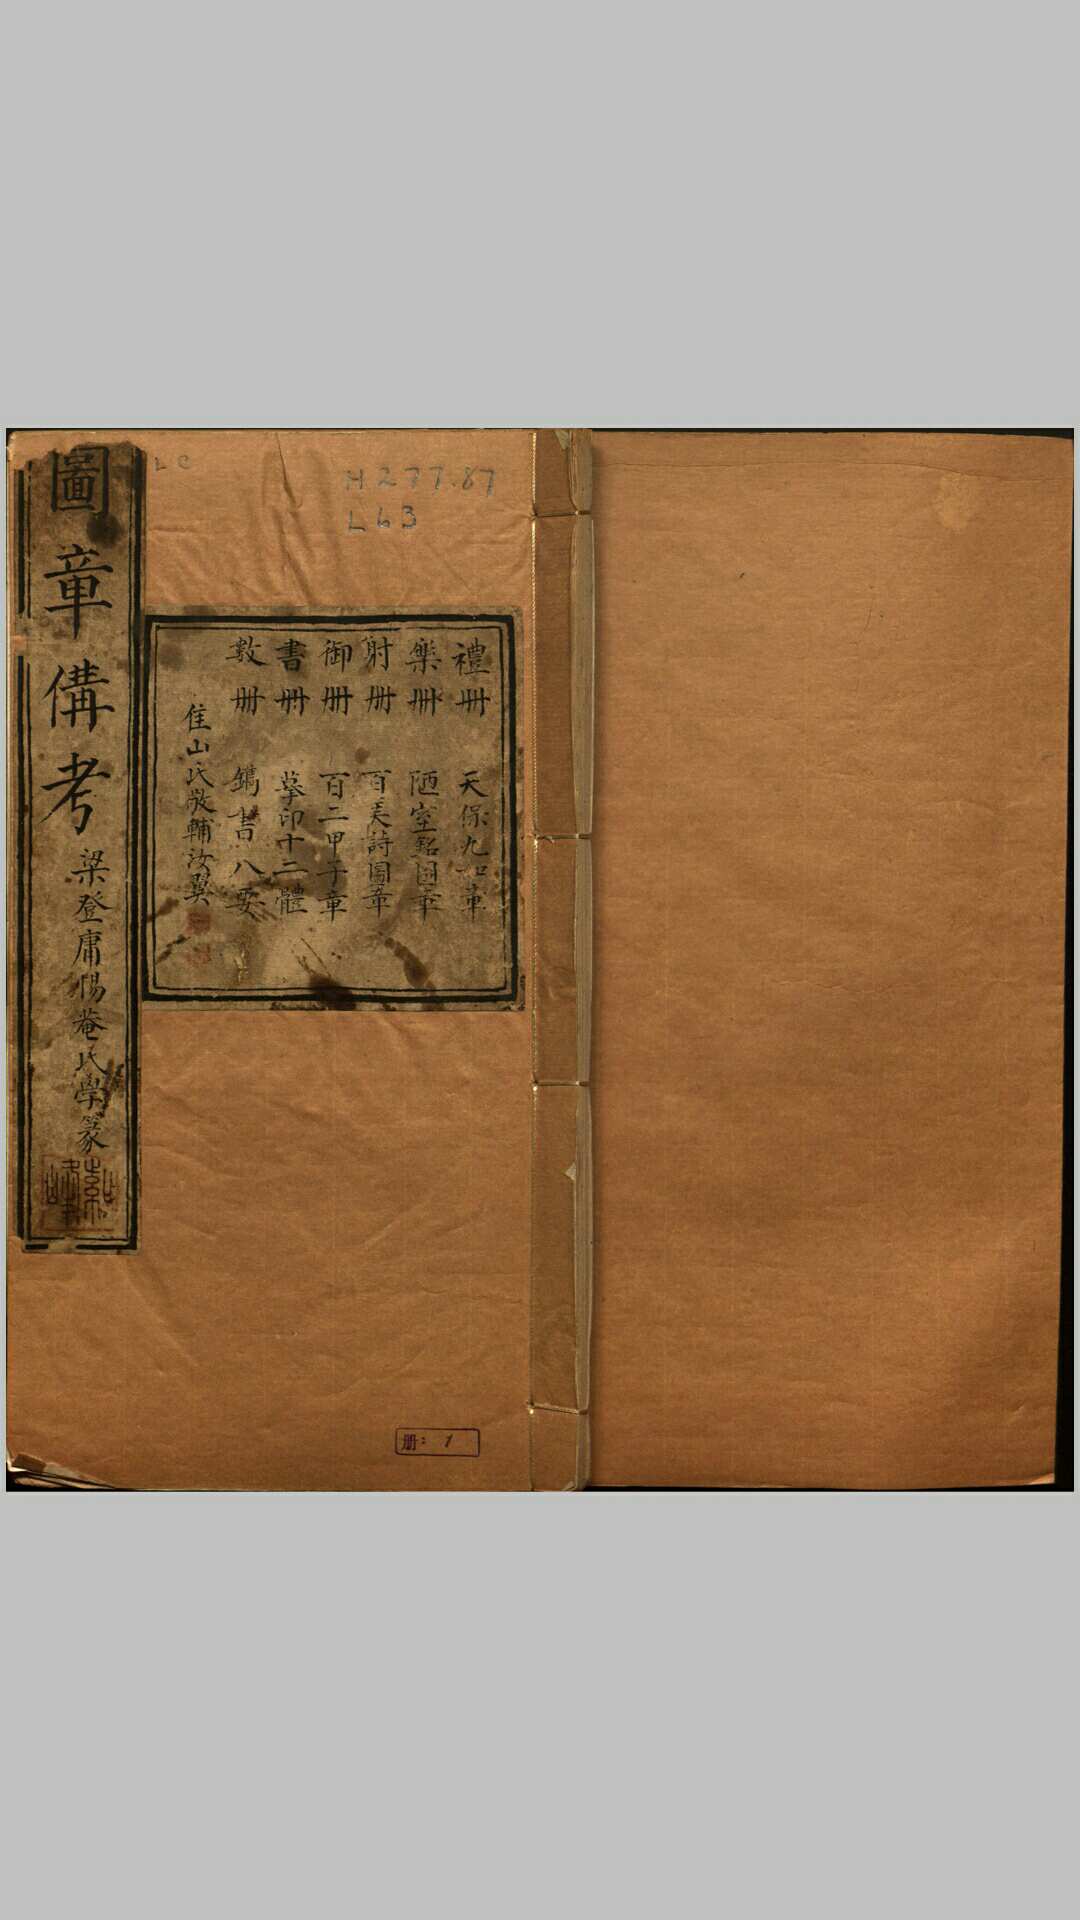 LC
H277.87
L63
禮冊 天保九如章
樂冊 陋室銘圖章
射冊 百美詩圖章
御冊 百二甲子章
書冊 摹印十二體
數冊 鐫書八要
隹山氏敬輔汝翼
圖章備考
梁登庸惕菴氏學篆
册: 1